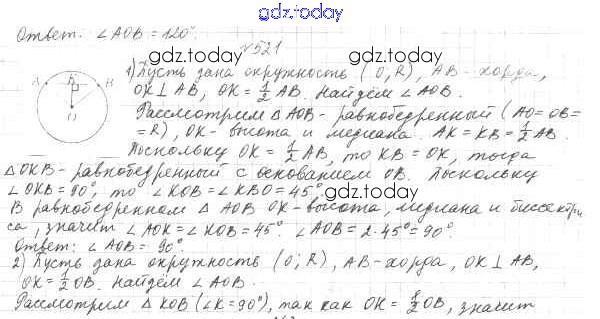 gdz.today
Ответ: ∠AOB = 120°.
gdz.today
gdz.today
№521
1) Пусть дана окружность (O, R), AB - хорда,
OK ⊥ AB, OK = 1/2 AB. Найдём ∠AOB.
A K B
O
Рассмотрим △AOB - равнобедренный (AO = OB =
= R), OK - высота и медиана. AK = KB = 1/2 AB.
Поскольку OK = 1/2 AB, то KB = OK, тогда
△OKB - равнобедренный с основанием OB. Поскольку
∠OKB = 90°, то ∠KOB = ∠KBO = 45°.
gdz.today
gdz.today
В равнобедренном △AOB OK - высота, медиана и биссектри
са, значит ∠AOK = ∠KOB = 45° ∠AOB = 2·45° = 90°
Ответ: ∠AOB = 90°.
gdz.today
gdz.today
2) Пусть дана окружность (O; R), AB - хорда, OK ⊥ AB,
OK = 1/2 OB. Найдём ∠AOB.
Рассмотрим △KOB (∠K = 90°), так как OK = 1/2 OB, значит